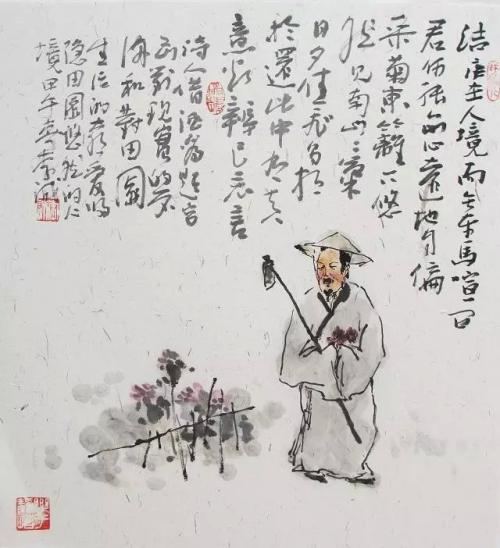 结庐在人境而无车马喧问
君何能尔心远地自偏
采菊东篱下悠
然见南山山气
日夕佳飞鸟相
於還此中有真
意欲辩已忘言
诗人借酒为题写
出对现实的不
满和对田园
生活的
隐田园悠然的心
境甲午春